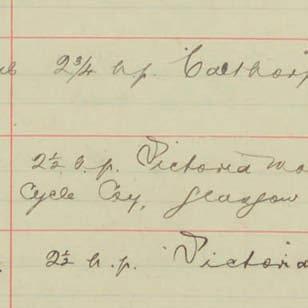 2¾ h.p. Calthorp
2½ h.p. Victoria Mo
Cycle Coy, Glasgow
2½ h.p. Victoria